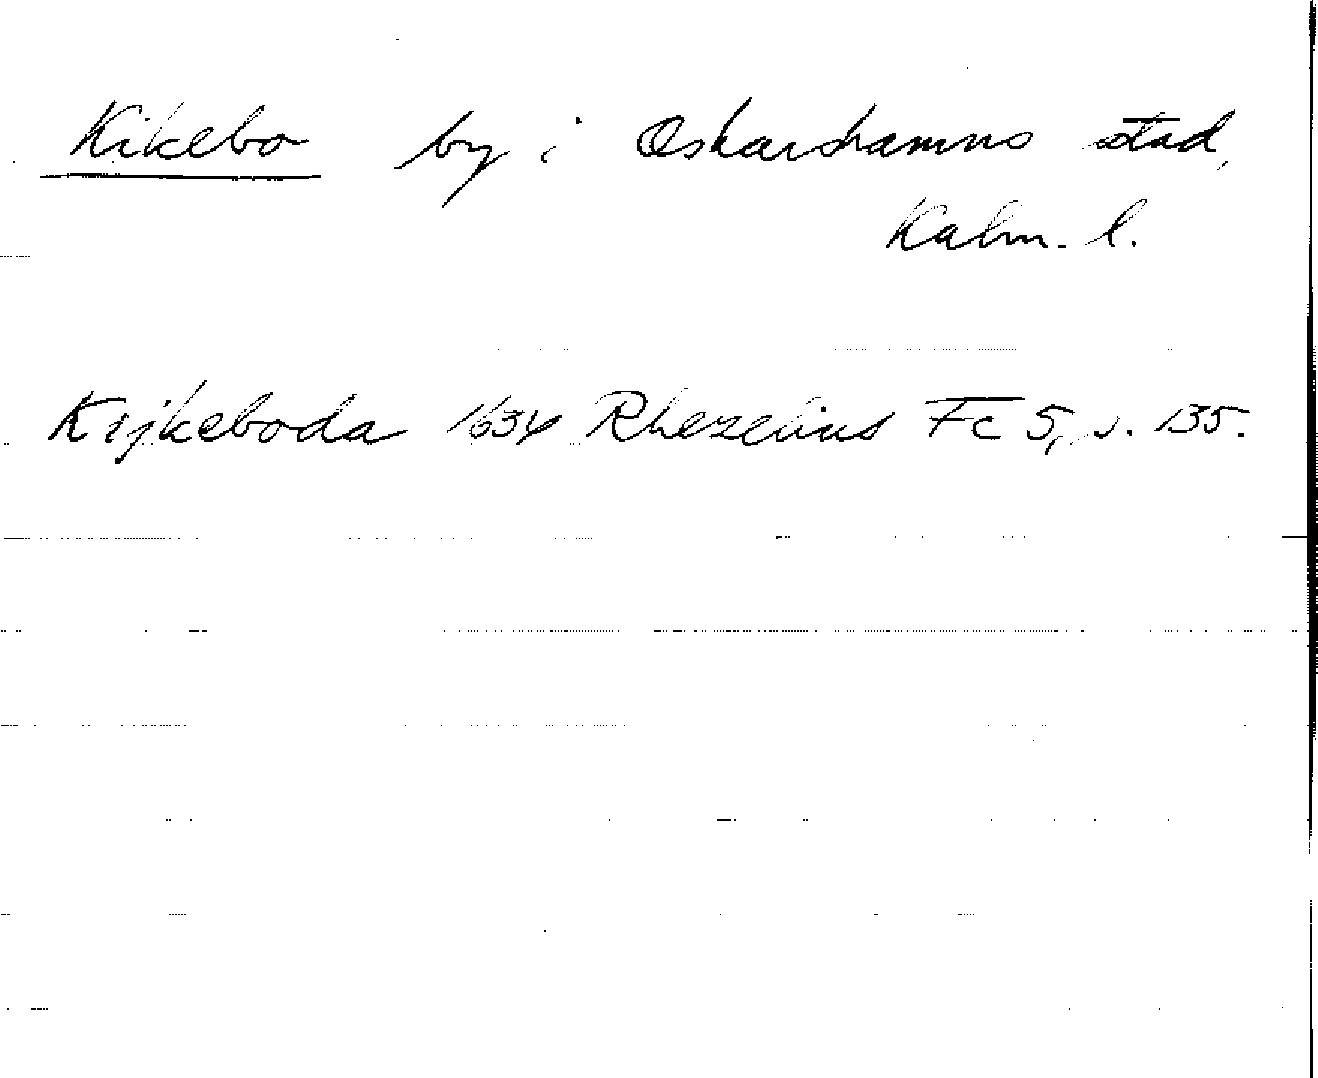 Kikebo by i Oskarshamns stad,
Kalm. l.
Kijkeboda 1634 Rhezelius Fc 5, s. 135.